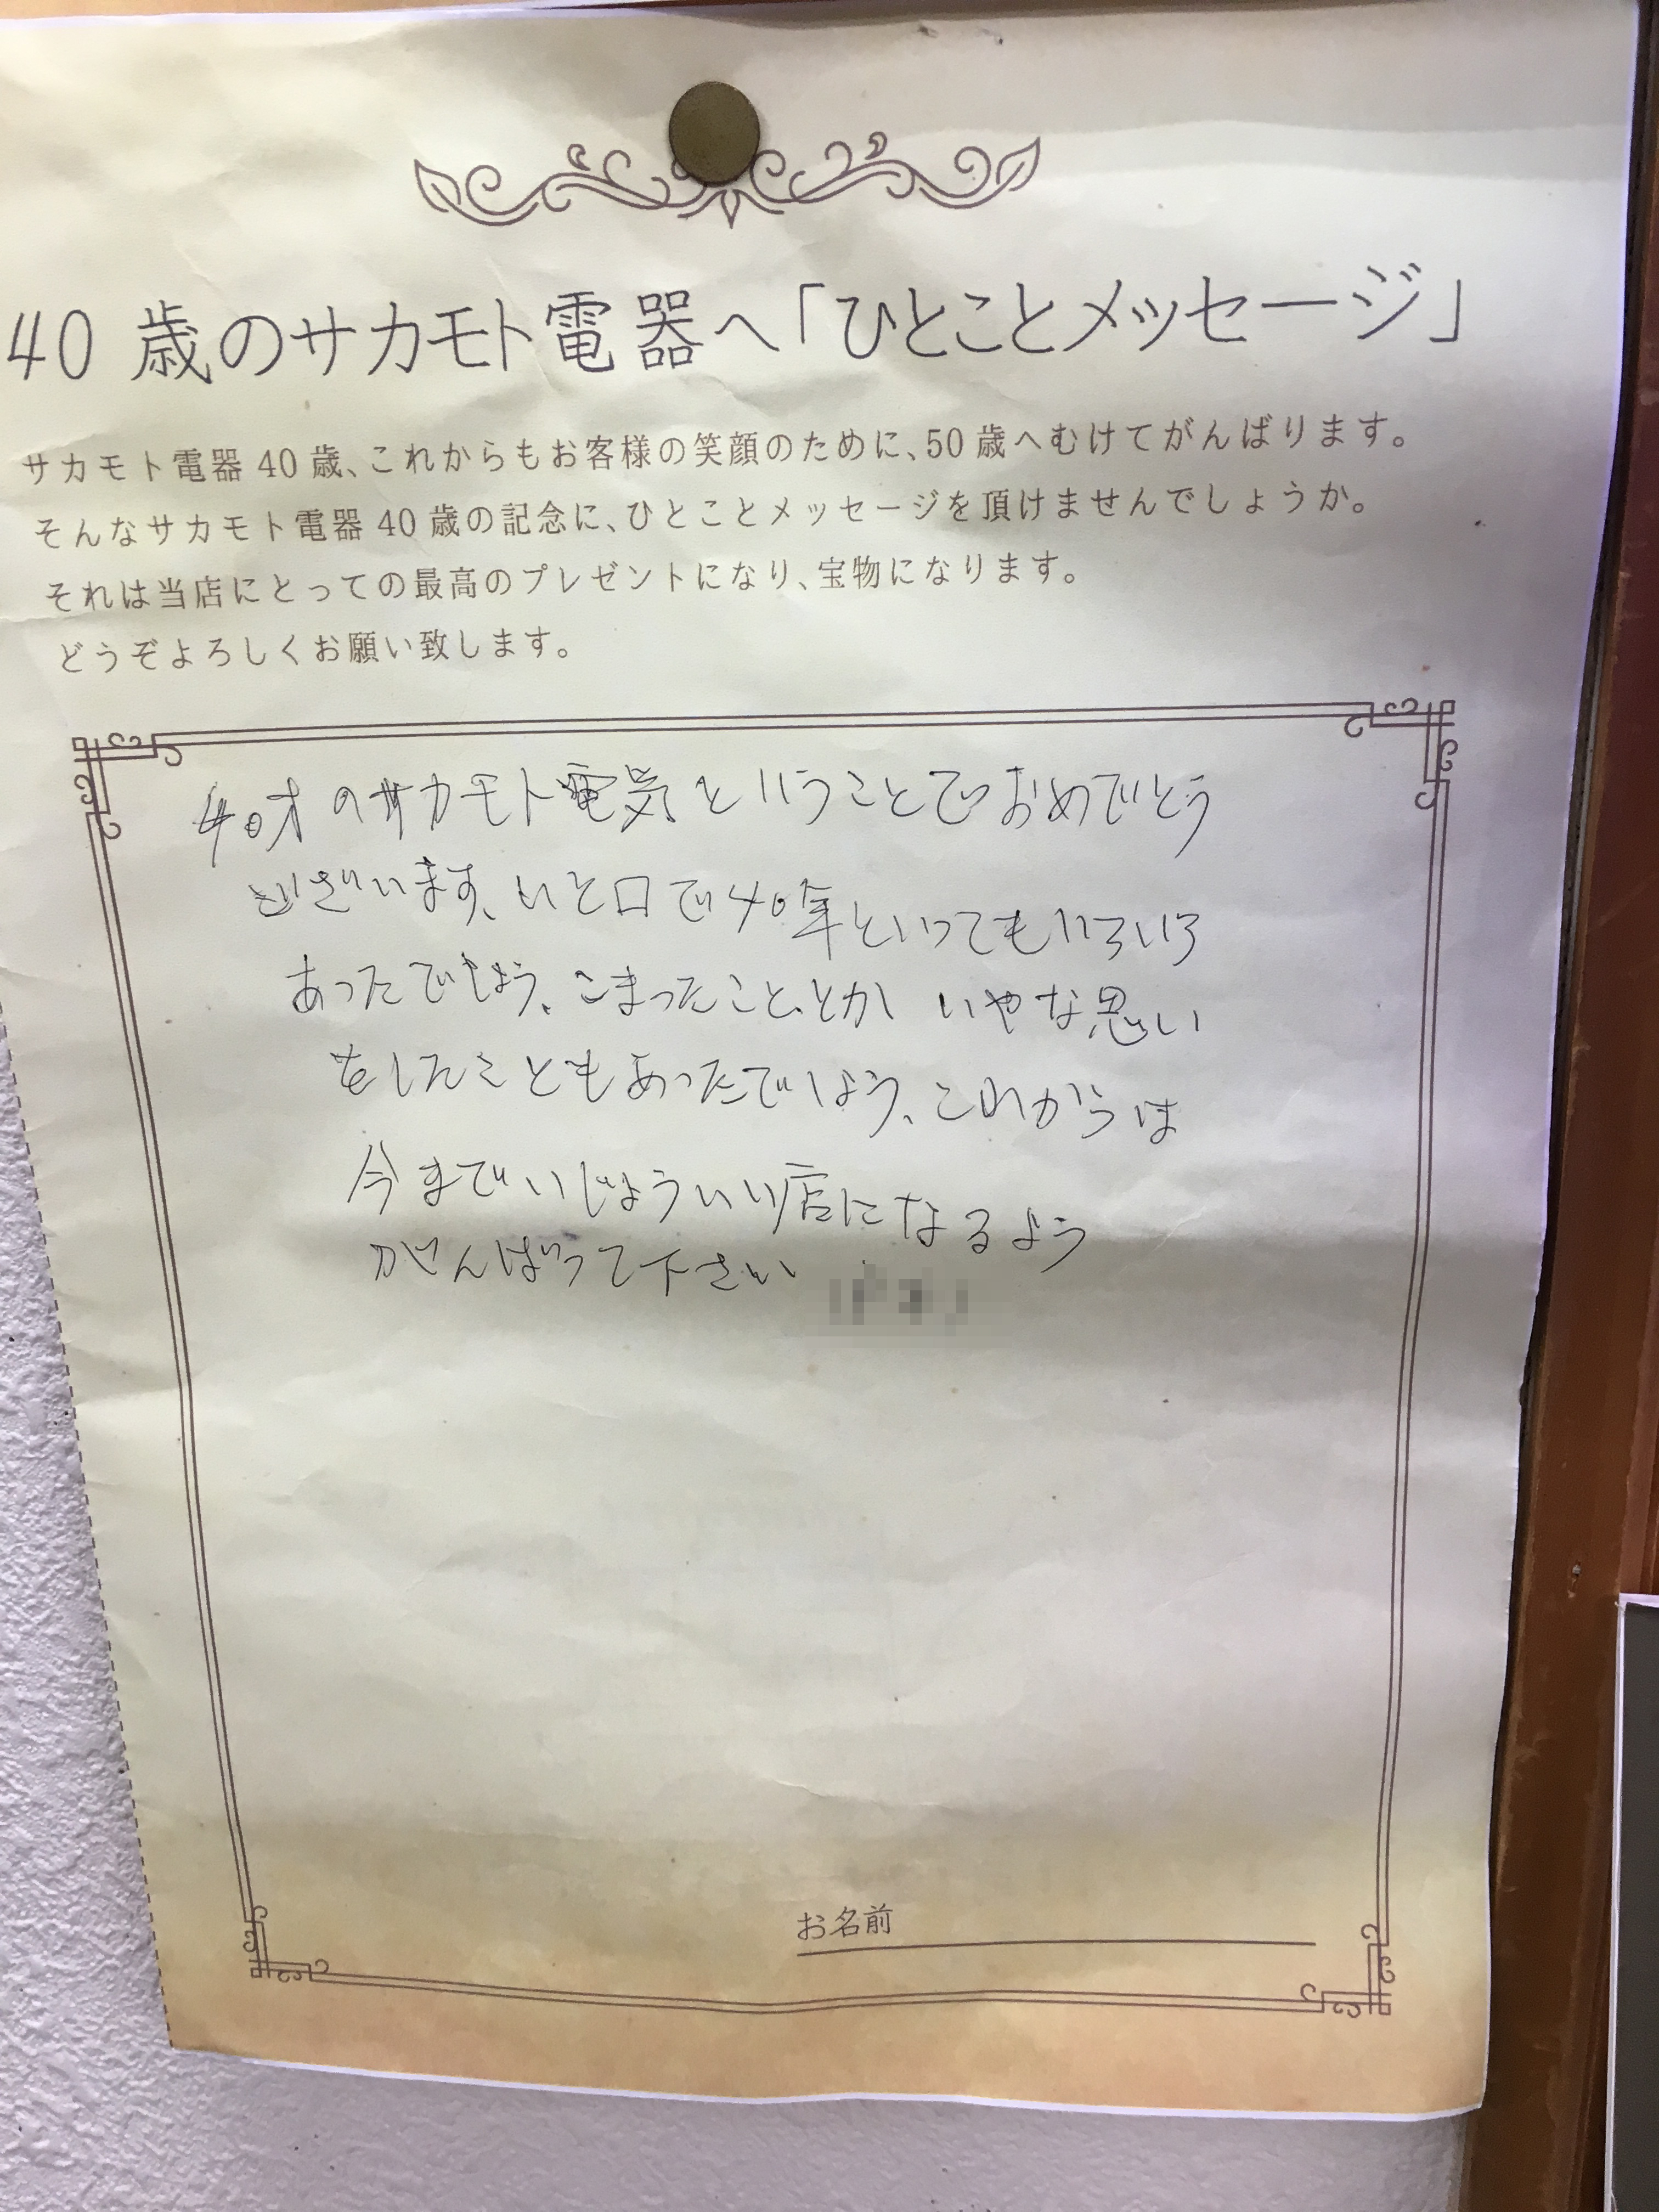 40歳のサカモト電器へ「ひとことメッセージ」
サカモト電器40歳、これからもお客様の笑顔のために、50歳へむけてがんばります。
そんなサカモト電器40歳の記念に、ひとことメッセージを頂けませんでしょうか。
それは当店にとっての最高のプレゼントになり、宝物になります。
どうぞよろしくお願い致します。
40才のサカモト電気ということでおめでとう
ございます、ひと口で40年といってもいろいろ
あったでしょう、こまったこと、とか いやな思い
をしたこともあったでしょう、これからは
今までいじょういい店になるよう
がんばって下さい
お名前